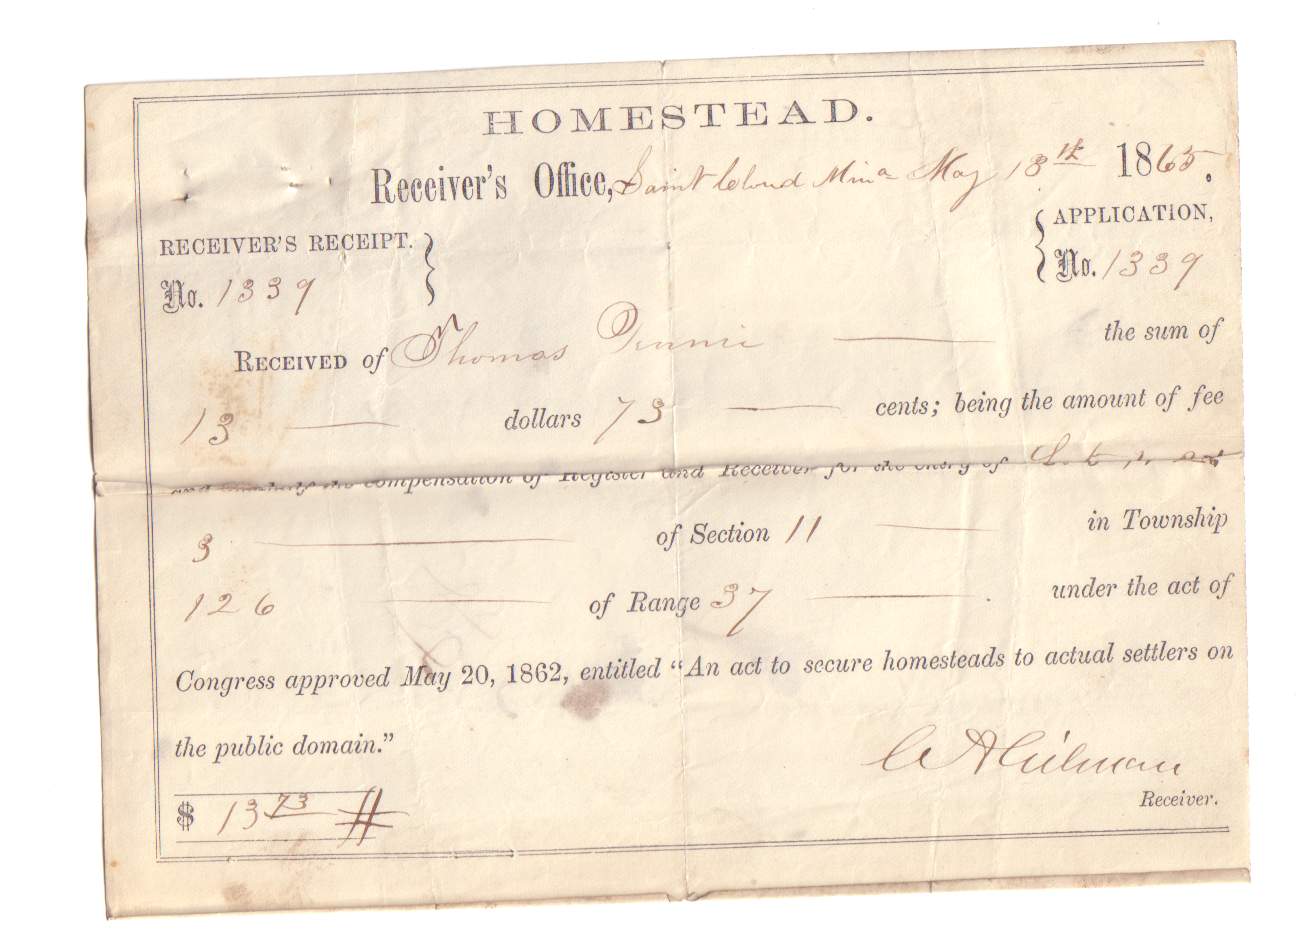 HOMESTEAD.
Receiver's Office, Saint Cloud Mina May 13th 1865.
RECEIVER'S RECEIPT. APPLICATION,
No. 1339 No. 1339
RECEIVED of Thomas the sum of
13 dollars 73 cents; being the amount of fee
and the compensation of Register and Receiver for the entry of
3 of Section 11 in Township
126 of Range 37 under the act of
Congress approved May 20, 1862, entitled "An act to secure homesteads to actual settlers on
the public domain."
C A Gilman
Receiver.
$ 13 73